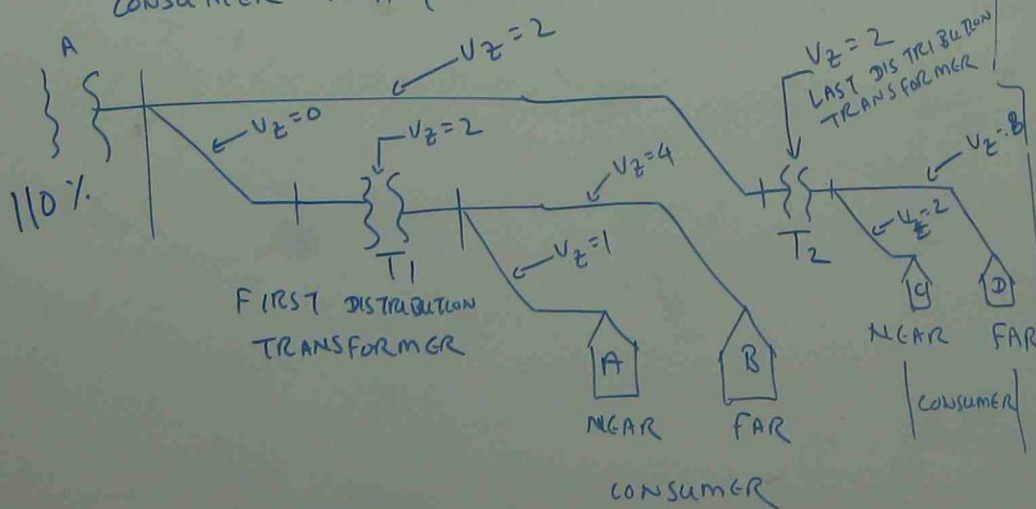 CONSUMER
A
110%
VZ=2
VZ=0
VZ=2
T1
FIRST DISTRIBUTION
TRANSFORMER
VZ=4
VZ=1
A
NEAR
B
FAR
CONSUMER
VZ=2
LAST DISTRIBUTION
TRANSFORMER
T2
VZ=8
VZ=2
C
NEAR
D
FAR
CONSUMER